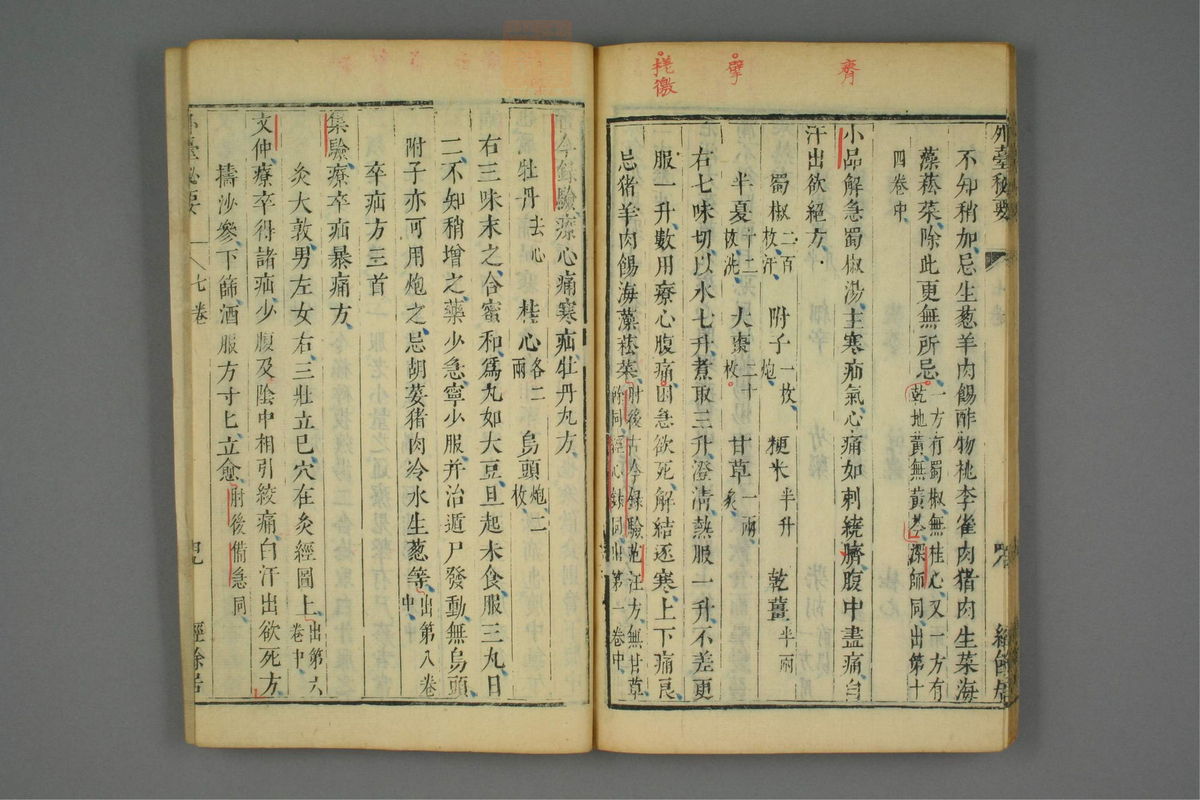 齊
擘
外臺秘要
經餘居
不知稍加忌生葱羊肉餳酢物桃李雀肉猪肉生菜海
藻菘菜除此更無所忌一方有蜀椒無桂心又一方有
乾地黃無黃芩深師同出第十
四卷中
小品解急蜀椒湯主寒疝氣心痛如刺繞臍腹中盡痛自
汗出欲絕方
蜀椒二百枚汗 附子一枚炮 粳米半升 乾薑半兩
半夏十二枚洗 大棗二十枚 甘草一兩炙
右七味切以水七升煮取三升澄清熱服一升不差更
服一升數用療心腹痛困急欲死解結逐寒上下痛良
忌猪羊肉餳海藻菘菜肘後古今錄驗范汪方無甘草
附同經心錄同出第一卷中
古今錄驗療心痛寒疝牡丹丸方
牡丹去心 桂心各二兩 烏頭炮二枚
右三味末之合蜜和爲丸如大豆旦起未食服三丸日
二不知稍增之藥少急寧少服并治遁尸發動無烏頭
附子亦可用炮之忌胡荽猪肉冷水生葱等出第八卷
中
卒疝方三首
集驗療卒疝暴痛方
灸大敦男左女右三壯立已穴在灸經圖上出第六
卷中
文仲療卒得諸疝少腹及陰中相引絞痛白汗出欲死方
擣沙參下篩酒服方寸匕立愈肘後備急同
外臺秘要
七卷
經餘居